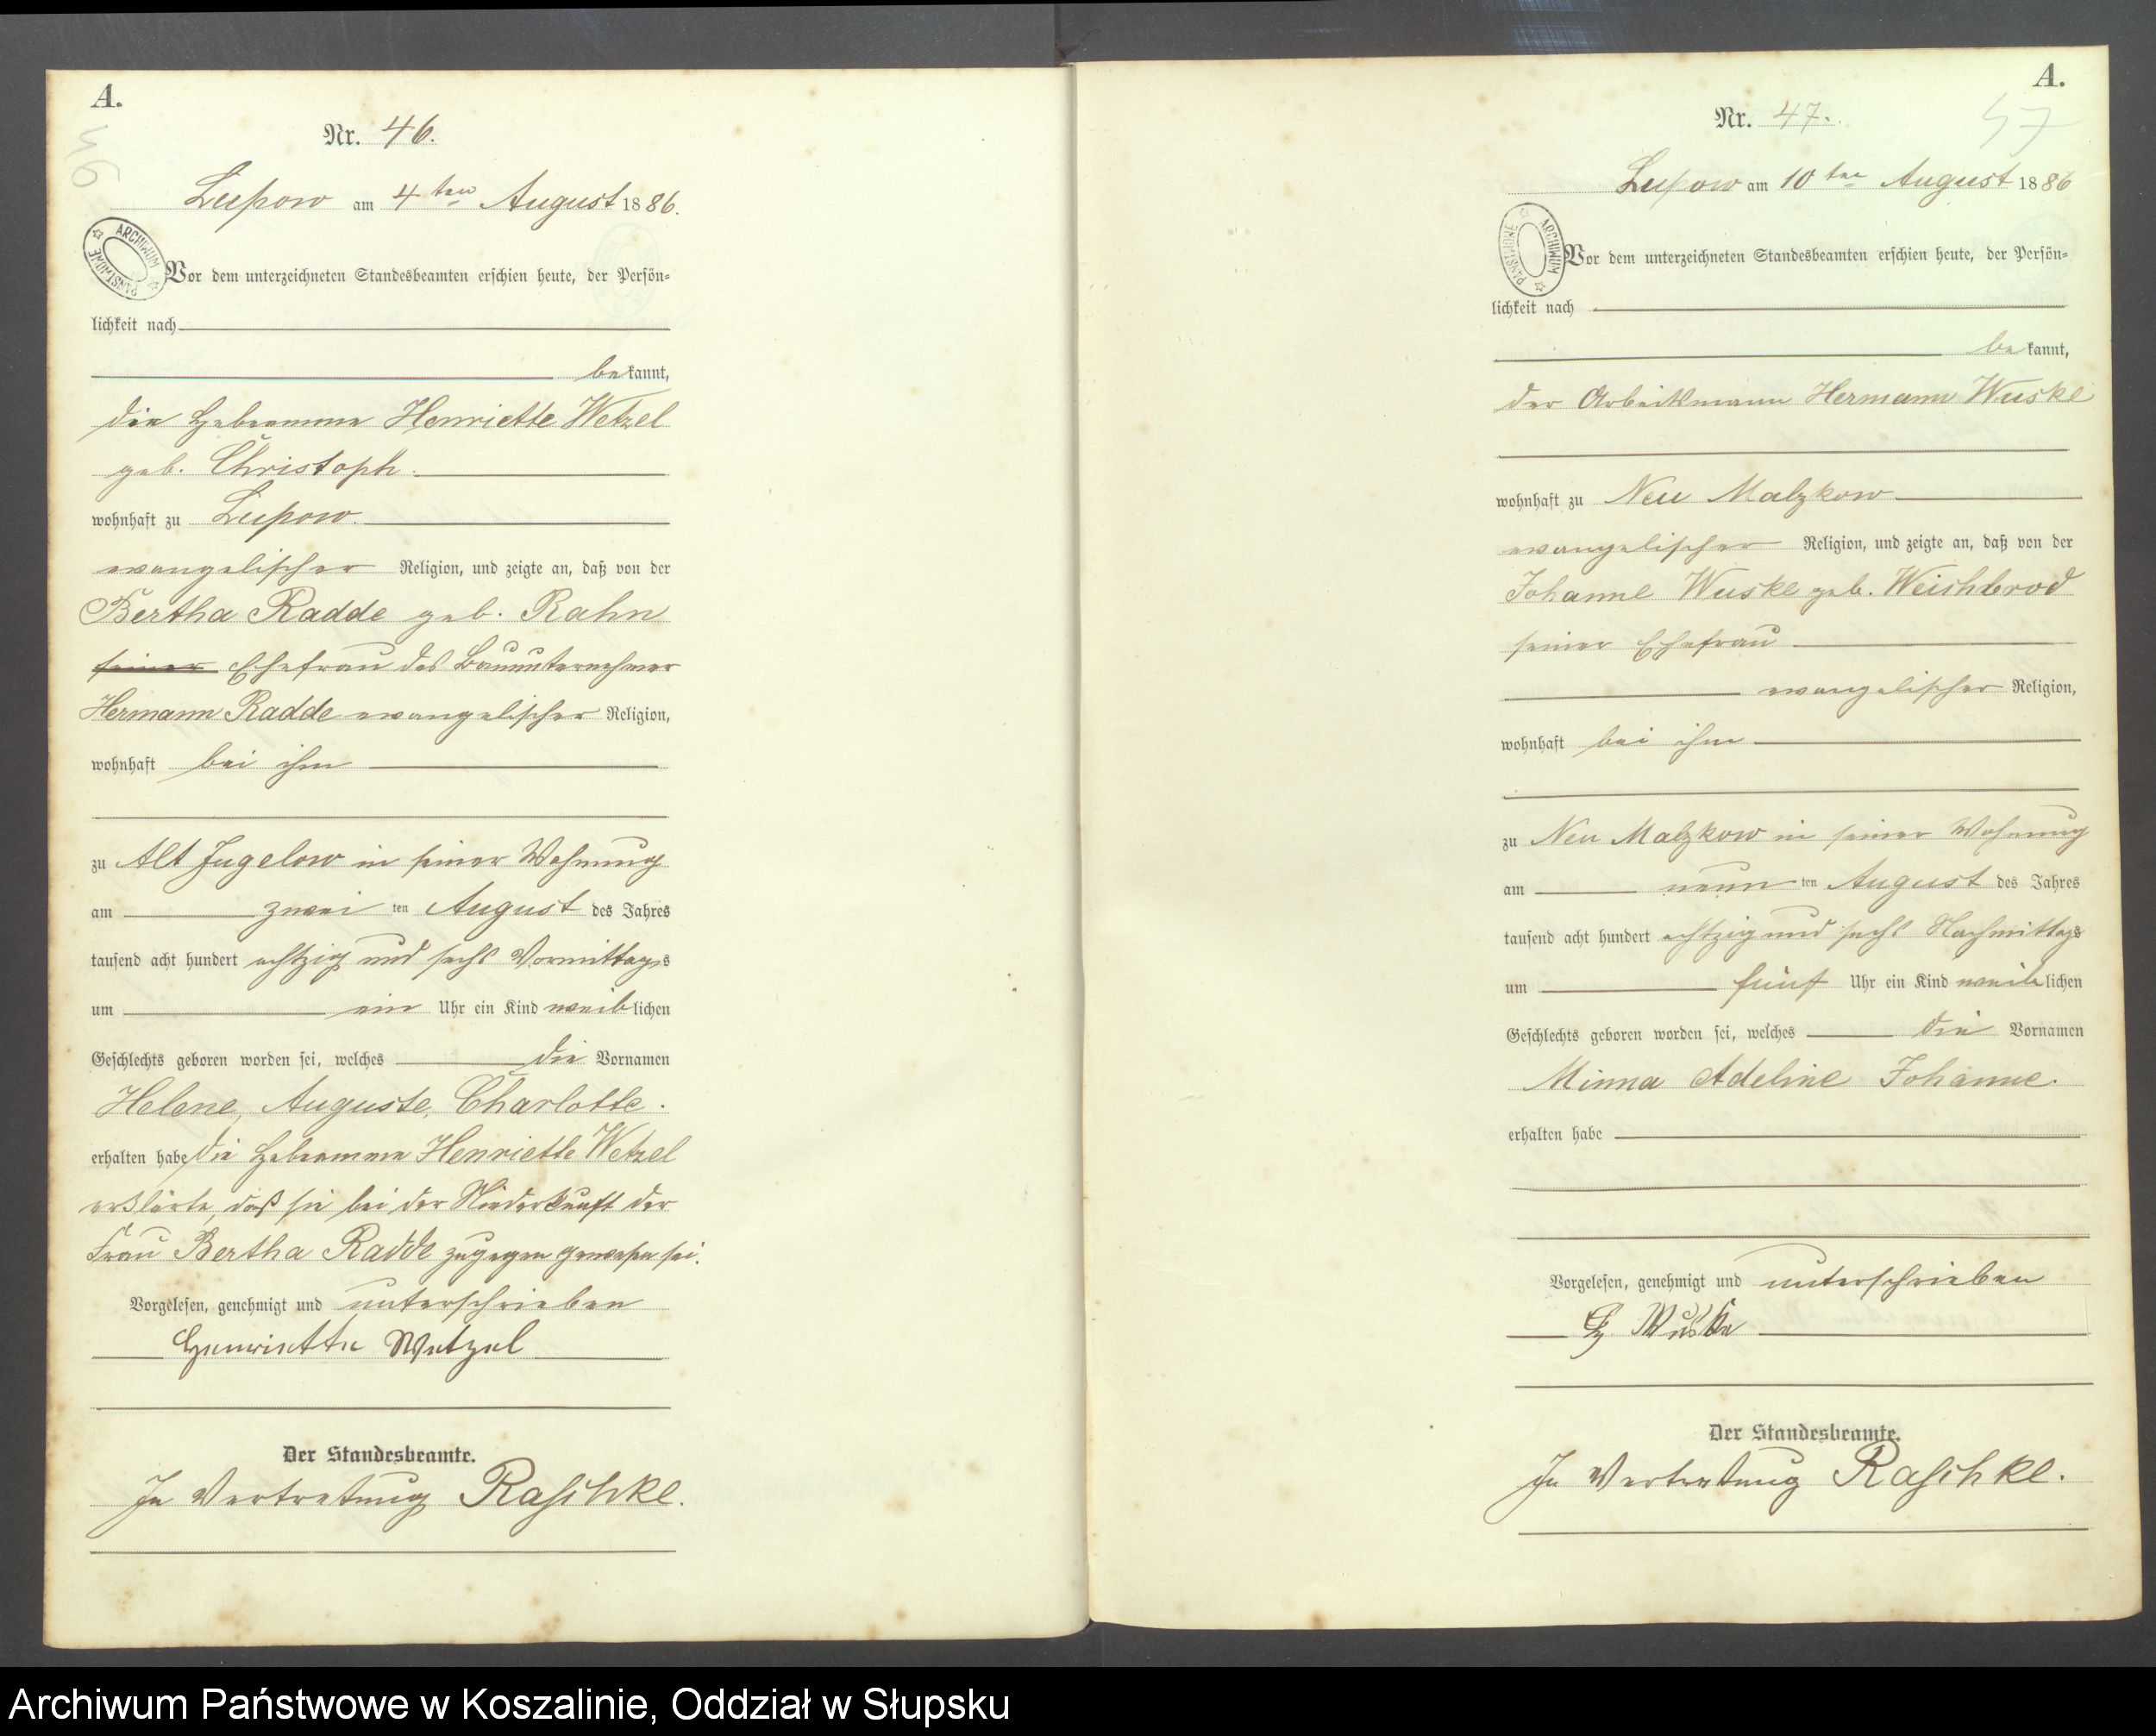 A.
46
Nr. 46.
Lupow am 4ten August 1886.
ARCHIWUM PAŃSTWOWE
Vor dem unterzeichneten Standesbeamten erschien heute, der Persön-
lichkeit nach
bekannt,
die Hebeamme Henriette Wetzel
geb. Christoph.
wohnhaft zu Lupow.
evangelischer Religion, und zeigte an, daß von der
Bertha Radde geb. Rahn
seiner Ehefrau des Bauunternehmer
Hermann Radde evangelischer Religion,
wohnhaft bei ihm
zu Alt Jugelow in seiner Wohnung
am zwei ten August des Jahres
tausend acht hundert achtzig und sechs Vormittags
um ein Uhr ein Kind weiblichen
Geschlechts geboren worden sei, welches die Vornamen
Helene, Auguste, Charlotte.
erhalten habe, die Hebeamme Henriette Wetzel
erklärte, daß sie bei der Niederkunft der
Frau Bertha Radde zugegen gewesen sei.
Vorgelesen, genehmigt und unterschrieben
Henriette Wetzel
Der Standesbeamte.
In Vertretung Raschke.
A.
47
Nr. 47.
Lupow am 10ten August 1886
ARCHIWUM PAŃSTWOWE
Vor dem unterzeichneten Standesbeamten erschien heute, der Persön-
lichkeit nach
bekannt,
der Arbeitsmann Hermann Wuske
wohnhaft zu Neu Malzkow
evangelischer Religion, und zeigte an, daß von der
Johanne Wuske geb. Weishbrod
seiner Ehefrau
evangelischer Religion,
wohnhaft bei ihm
zu Neu Malzkow in seiner Wohnung
am neun ten August des Jahres
tausend acht hundert achtzig und sechs Nachmittags
um fünf Uhr ein Kind weiblichen
Geschlechts geboren worden sei, welches die Vornamen
Minna Adeline Johanne.
erhalten habe
Vorgelesen, genehmigt und unterschrieben
Wuske
Der Standesbeamte.
In Vertretung Raschke.
Archiwum Państwowe w Koszalinie, Oddział w Słupsku